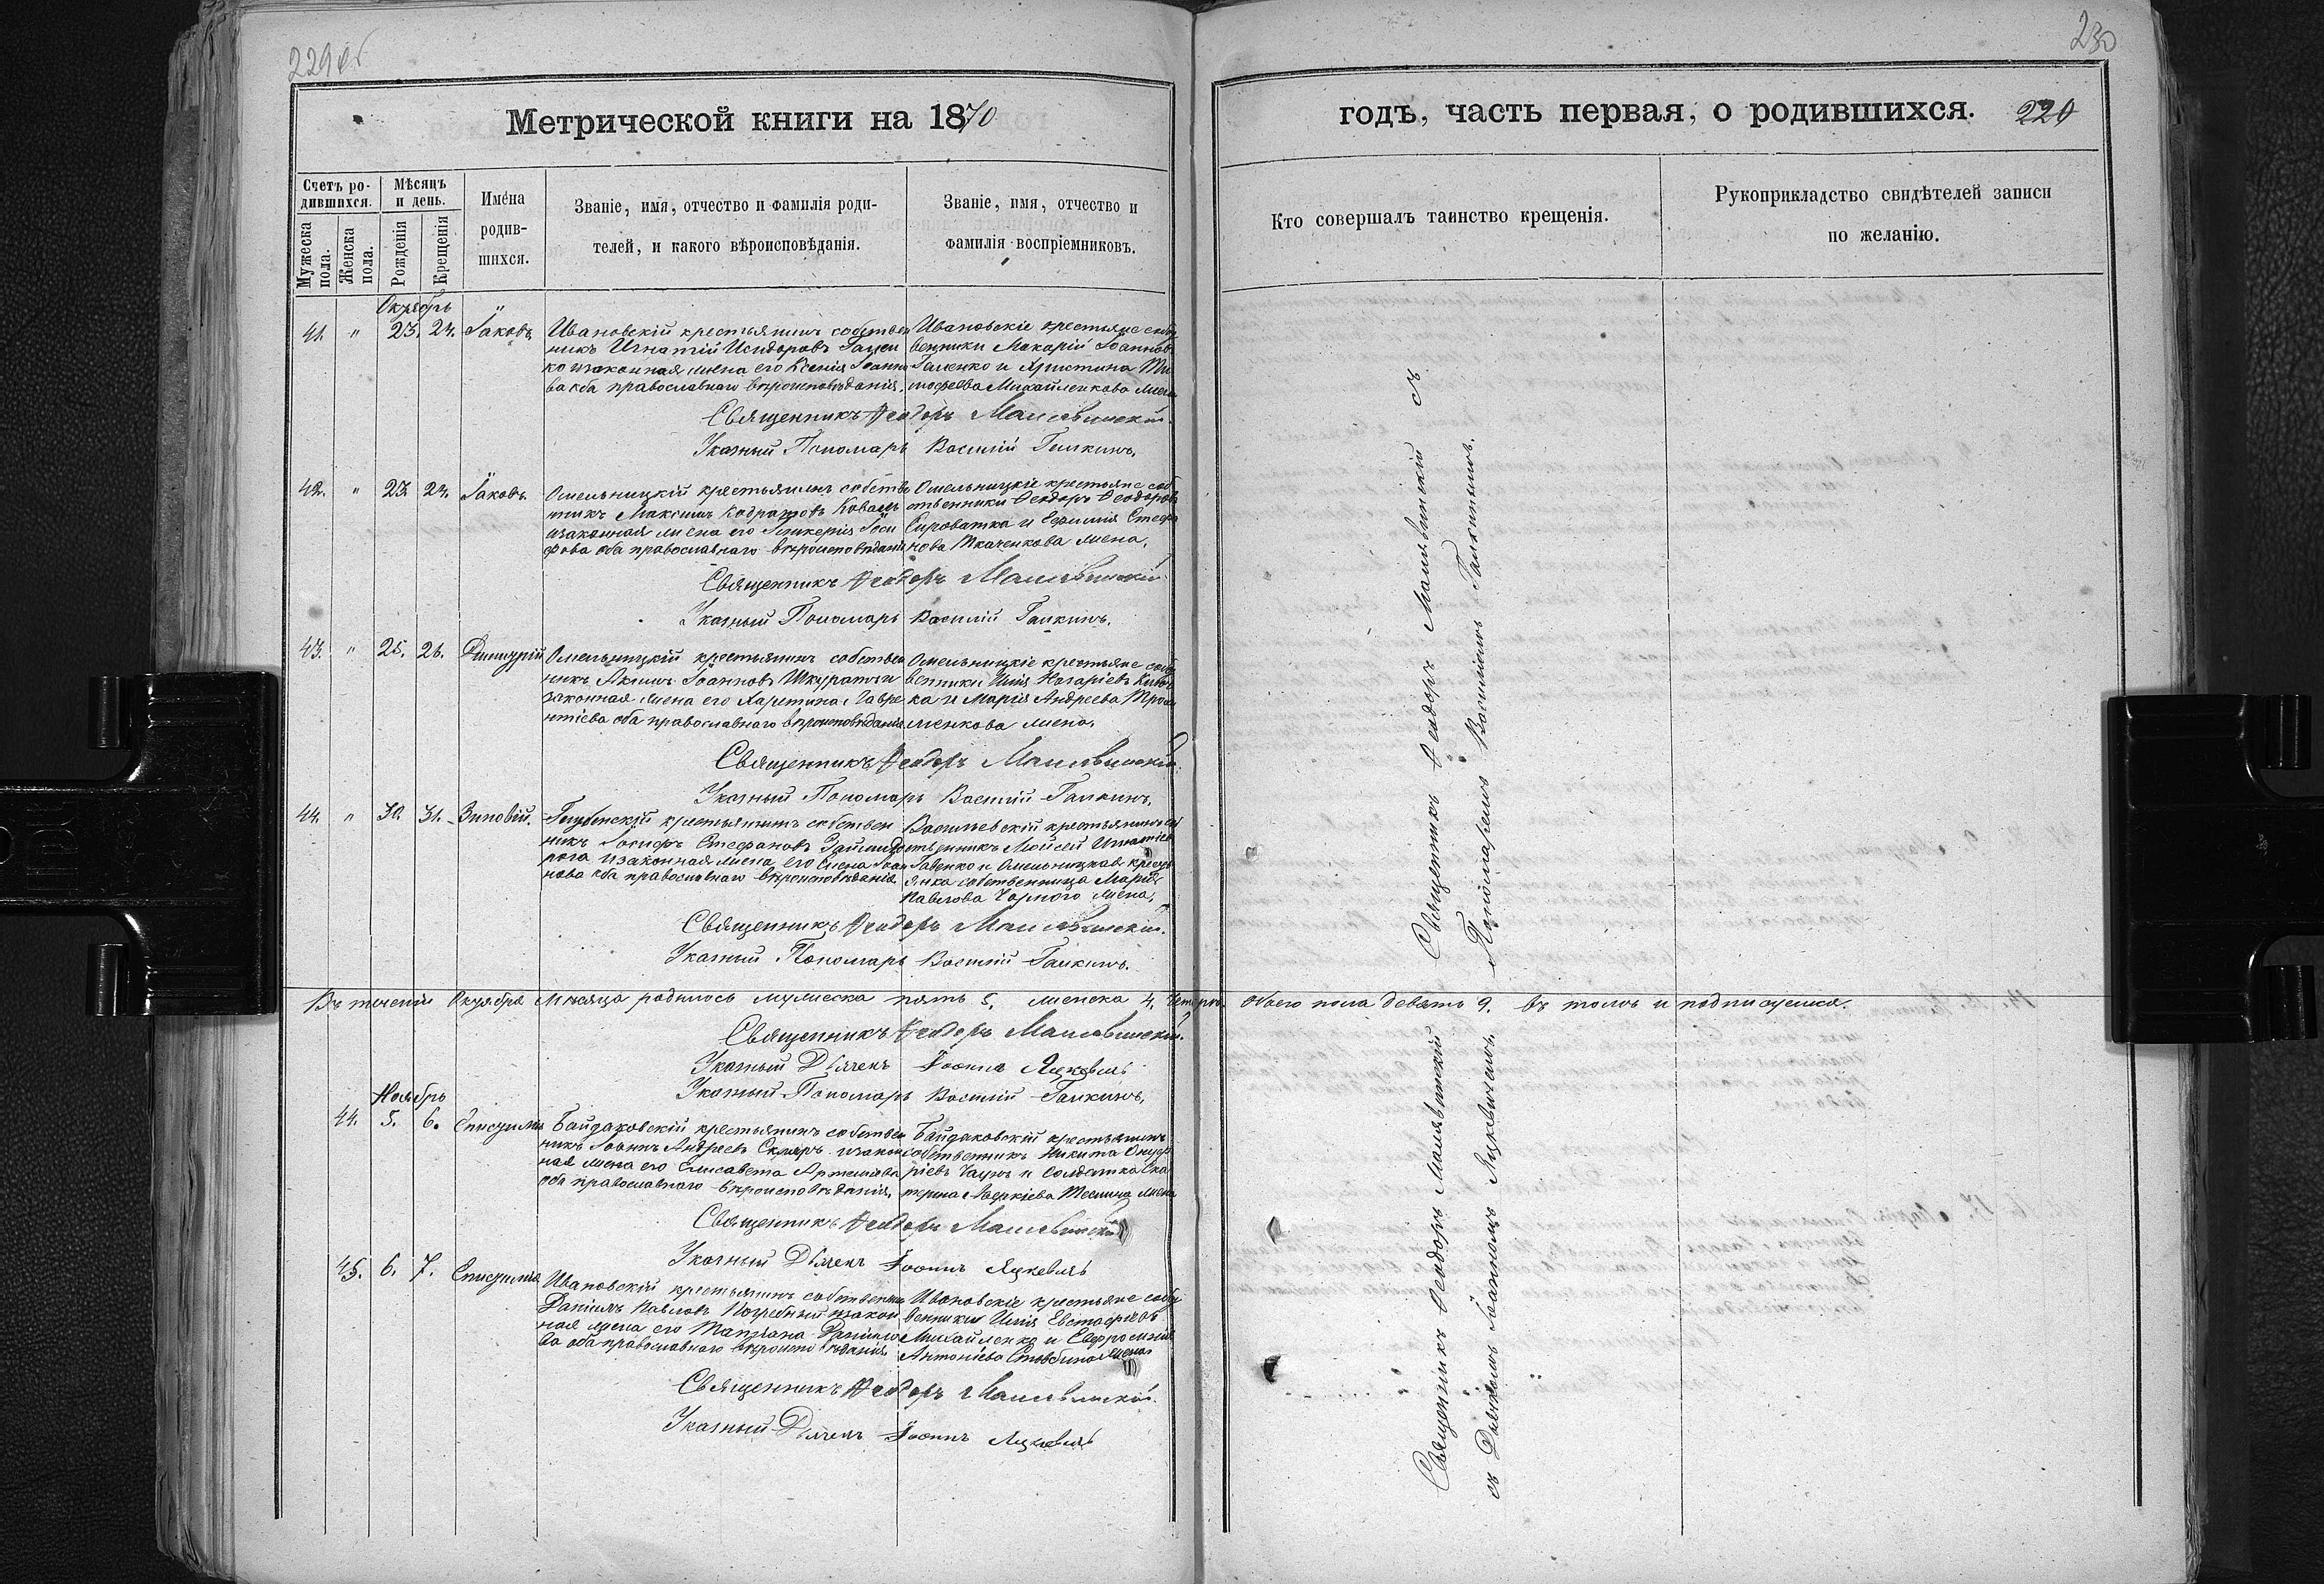 229 об
230
Метрической книги на 1870
годъ, часть первая, о родившихся. 220
Счетъ родившихся.
Мужеска пола.
Женска пола.
Мѣсяцъ и день.
Рожденія
Крещенія
Имена родившихся.
Званіе, имя, отчество и фамилія родителей, и какого вѣроисповѣданія.
Званіе, имя, отчество и фамилія воспріемниковъ.
Кто совершалъ таинство крещенія.
Рукоприкладство свидѣтелей записи по желанію.
Октябрь
41. " 23. 24. Іаковъ
Ивановскій крестьянинъ собствен
никъ Игнатій Исидоровъ
ко изаконная жена его Ксенія Іоанно
ва оба православнаго вѣроисповѣданія.
Ивановскіе крестьяне собст
венники Макарій Іоаннов
Галенко и Христина Ти
мофеева Михайленкова жена
Священникъ Ѳеодоръ Малявинскій
Указный Пономарь Василій Галкинъ.
42. " 23. 24. Іаковъ.
Омельницкій крестьянинъ собстве
никъ Максимъ Кодратовъ Коваль
изаконная жена его Гликерія Іоси
фова оба православнаго вѣроисповѣдані
Омельницкіе крестьяне соб
ственники Ѳеодоръ Ѳеодоровъ
Сироватка и Ефимія Стефа
нова Ткаченкова жена.
Священникъ Ѳеодоръ Малявинскій
Указный Пономарь Василій Галкинъ.
43. " 25. 26. Димитрій
Омельницкій крестьянинъ собствен
никъ Акимъ Іоанновъ Шкуратъ и
законная жена его Харитина Лавре
нтіева оба православнаго вѣроисповѣданія
Омельницкіе крестьяне собст
венники Илія Назаріевъ
ка и Марія Андреева
менкова жена.
Священникъ Ѳеодоръ Малявинскій
Указный Пономарь Василій Галкинъ.
44. " 30. 31. Зиновій.
крестьянинъ собствен
никъ Іосифъ Стефановъ
рога изаконная жена его Елена Іоан
нова оба православнаго вѣроисповѣданія
Васильевскій крестьянинъ со
ственникъ Моисей Игнатіев
Гавенко и Омельницкая кресть
янка собственница Марія
Павлова Чорного жена.
Священникъ Ѳеодоръ Малявинскій
Указный Пономарь Василій Галкинъ.
Въ теченіи Октября Мѣсяца родилось мужеска пять 5. женска 4. четыре. Обоего пола девять 9. въ томъ и подписуемся.
Священникъ Ѳеодоръ Малявинскій
Указный Дьячекъ Іоаннъ Яцкевичъ
Указный Пономарь Василій Галкинъ.
Ноябрь
44. 5. 6.
Байдаковскій крестьянинъ собствен
никъ Іоаннъ Андреевъ Скляръ изакон
ная жена его Елисавета Артемиева
оба православнаго вѣроисповѣданія.
Байдаковскій крестьянинъ
собственникъ Никита Онуф
ріевъ и солдатка Ека
терина Аверкіева жена
Священникъ Ѳеодоръ Малявинскій
Указный Дьячекъ Іоаннъ Яцкевичъ
45. 6. 7.
Ивановскій крестьянинъ собственни
Даніилъ Павловъ Погребный изакон
ная жена его Татіана Даніило
ва оба православнаго вѣроисповѣданія
Ивановскіе крестьяне собст
венники Илія Евстафіевъ
Михайленко и Евфросинія
Антоніева жена
Священникъ Ѳеодоръ Малявинскій
Указный Дьячекъ Іоаннъ Яцкевичъ
Священникъ Ѳеодоръ Малявинскій съ
Пономаремъ Василіемъ Галкинымъ.
Священникъ Ѳеодоръ Малявинскій
съ Дьячкомъ Іоанномъ Яцкевичемъ.